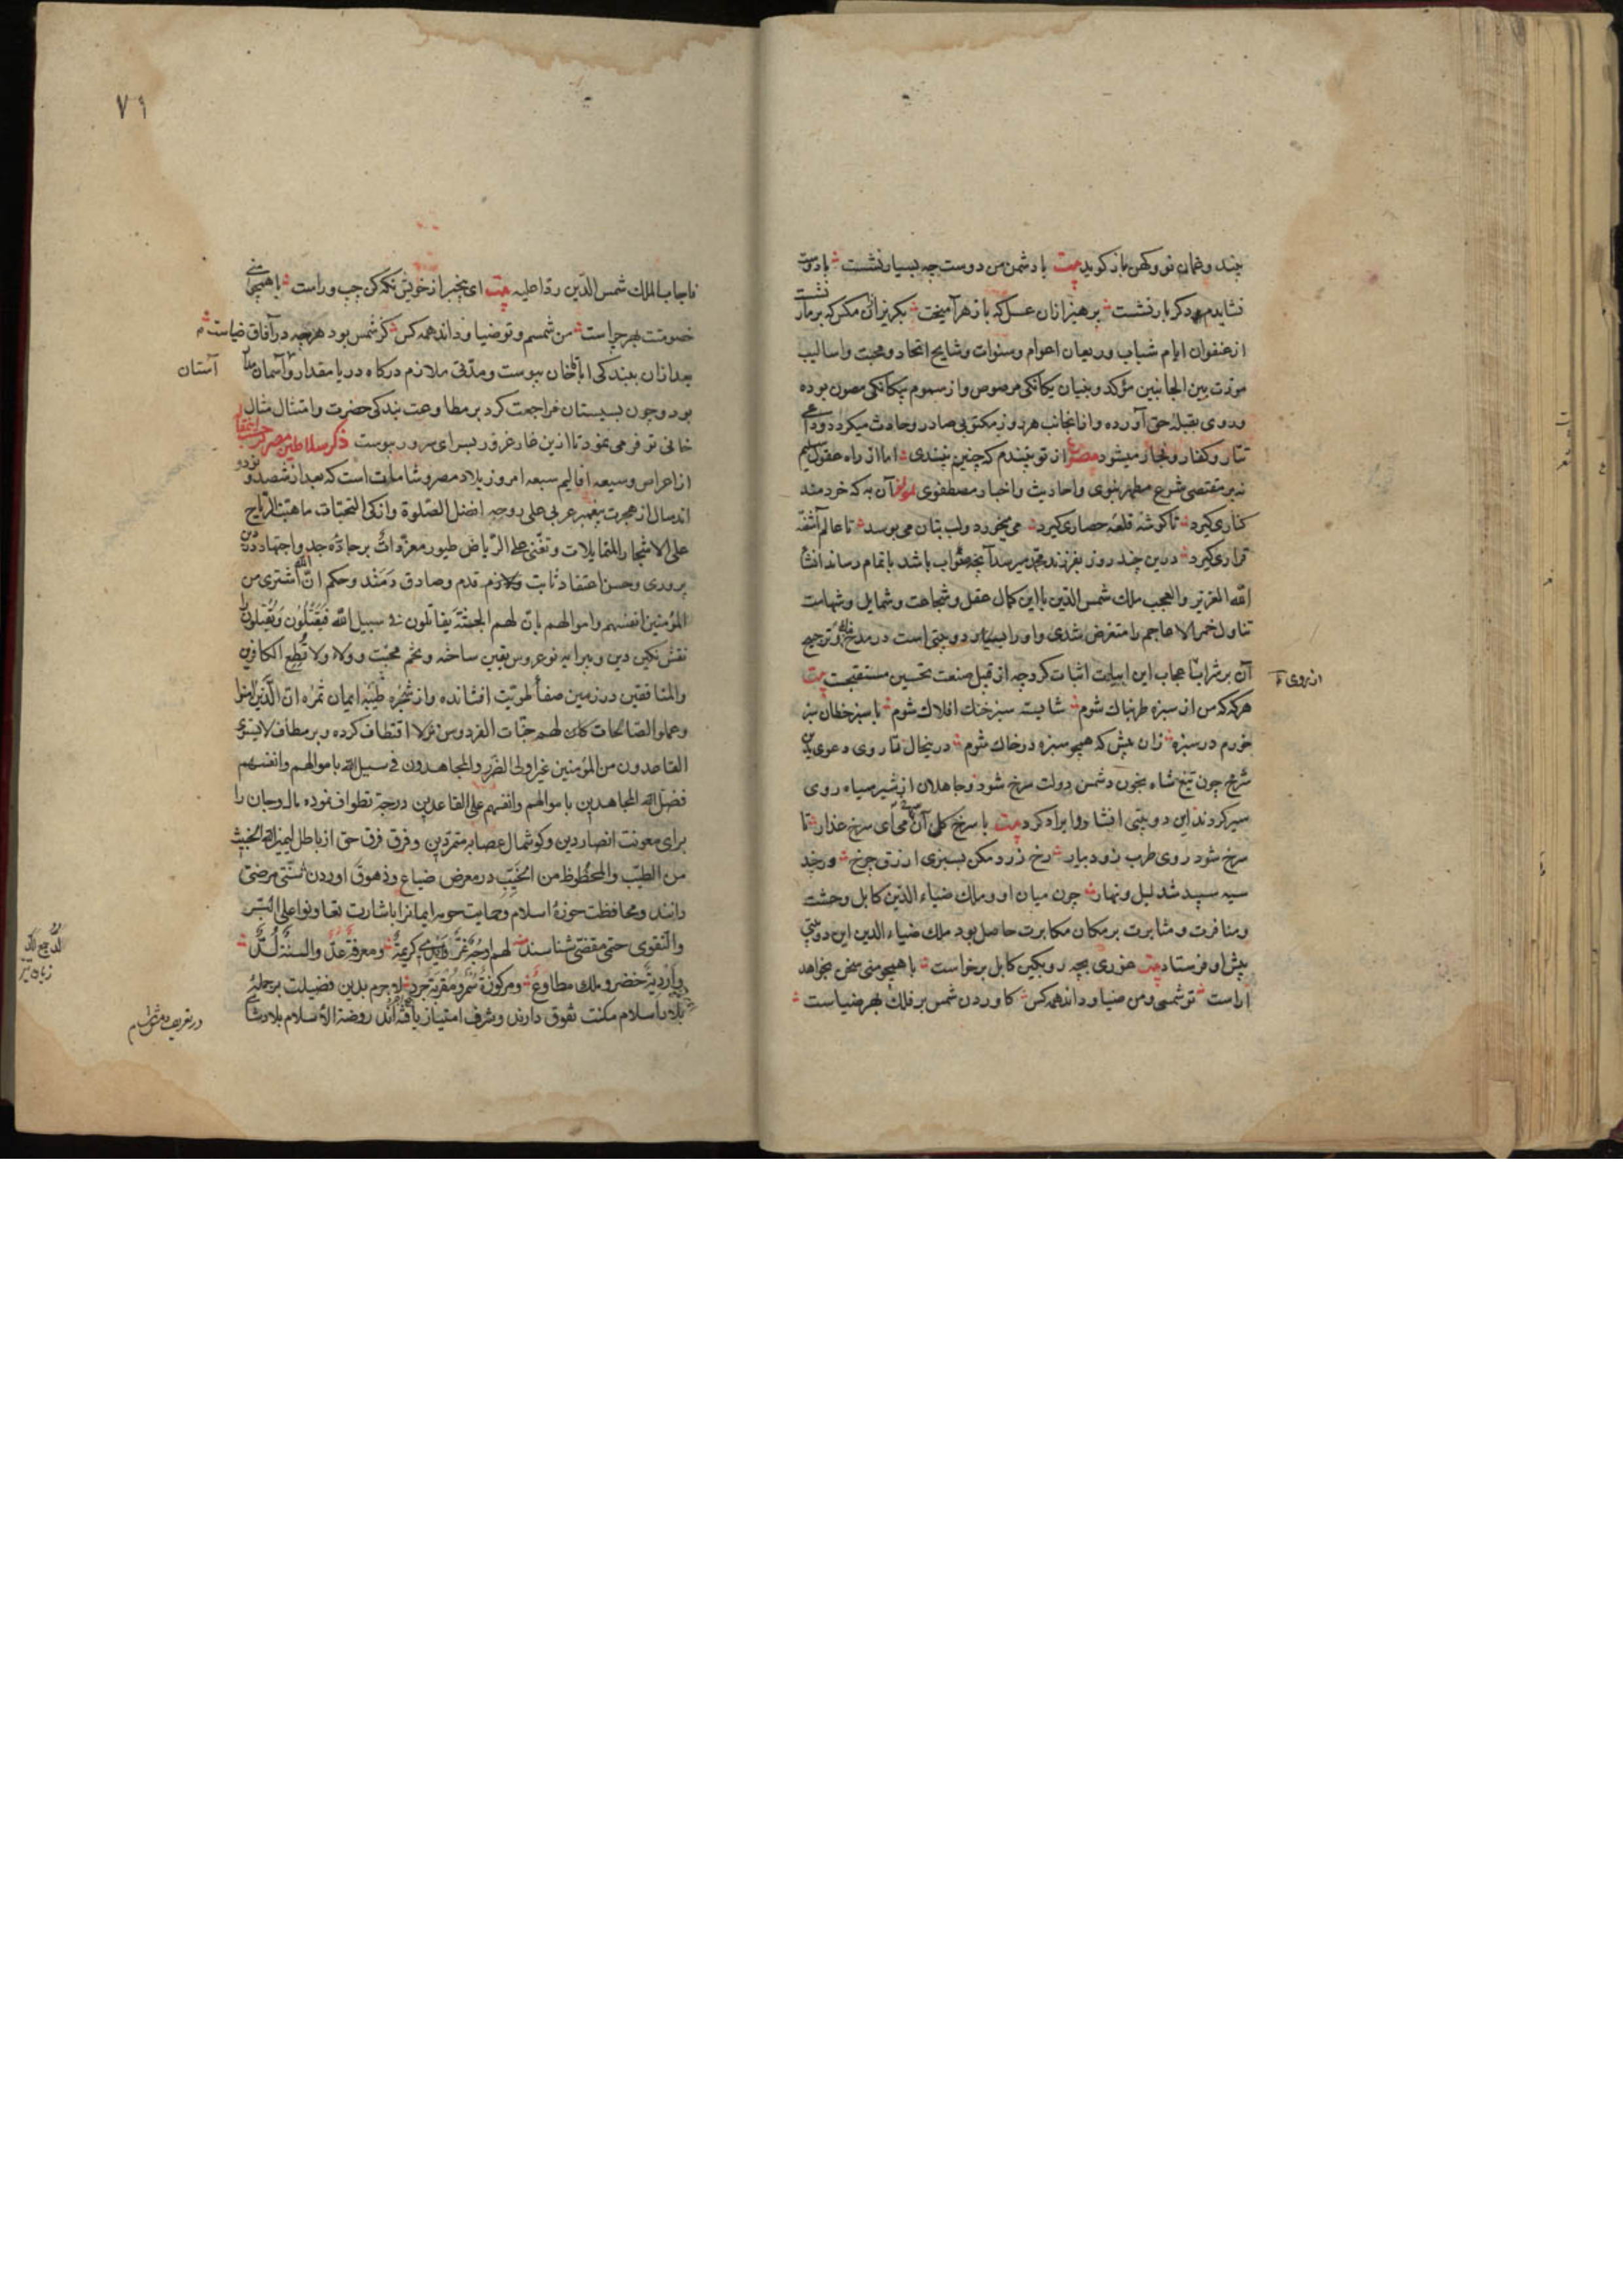 چند و غمان نو و کهن باز کوید بیت با دشمن من دوست چه بسیار نشست با دوست
نشایدم دکر بار نشست پرهیز ازان عسل که با زهر آمیخت بکریز ازان مکس که بر مار نشست
از عنفوان ایام شباب و ریعان اعوام و سنوات وشایح اتحاد و محبت و اسالیب
مودت بین الجانبین مؤکد و بنیان یکانکی مرصوص و از سموم بیکانکی مصون بوده
و روی بقبله حق آورده و ازانجانب هر روز مکتوبی صادر و حادث میکردد و داعی
تتار و کفار و فجار میشود مصراع از تو نپسندم که چنین بپسندی اما از راه عقول سلیم
نه بر مقتضی شرع مطهر نبوی و احادیث و اخبار مصطفوی آن به که خردمند
کناری کیرد تا کوشه قلعه حصاری کیرد می میخورد و لب بتان می بوسد تا عالم آشفته
قراری کیرد درین چند روز بفرزند محمد میرسد آنچه صواب باشد باتمام رساند انشا
الله العزیز والعجب ملک شمس الدین با این کمال عقل و شجاعت و شمایل و شهامت
تناول خمر الاعاجم را متعرض شدی و او را بسیار دو بیتی است در مدح و ترجیح
آن بر شراب اعجاب این ابیات اثبات کرد چه از قبل صنعت تحسین مستقبحت بیت
از روی
هر که که من از سبزه طربناک شوم شایسته سبز خنک افلاک شوم با سبز خطان سبز
خورم در سبزه زان پیش که همچو سبزه در خاک شوم درینحال تا روی دعوی بدین
شرح چون تیغ شاه بخون دشمن دولت سرخ شود و جاهلان از شیر سیاه روی
سیر کردند این دو بیتی انشا روا یراد کرد بیت با سرخ کل آن می ای سرخ عذار تا
سرخ شود روی طرب زود بیار رخ زرد مکن بسبزی ازرق چرخ ورچند
سیه سپید شد لیل و نهار چون میان او و ملک ضیاء الدین کابل وحشت
و منافرت و مثابرت بر مکان مکابرت حاصل بود ملک ضیاء الدین این دو بیتی
پیش او فرستاد بیت غوری بچه رو بکین کابل برخواست با همچو منی سخن بخواهد
اراست تو شمسی و من ضیا و دانند همه کس کاوردن شمس بر فلک بهر ضیاست
۷۱
فاجاب الملک شمس الدین ردا علیه بیت ای بیخبر از خویش نکه کن چپ و راست با همچو منی
خصومتت بهر چراست من شمسم و تو ضیا و دانند همه کس کز شمس بود هرچه در آفاق ضیاست
بعد ازان ببندکی اباقا خان پیوست و مدتی ملازم درکاه دریا مقدار و آسمان
آستان
بود و چون بسیستان مراجعت کرد بر مطاوعت بندکی حضرت و امتثال مثال
خانی توفر می نمود تا ازین غار غرور بسرای سرور پیوست ذکر سلاطین مصر
از اعراس وسیعه اقالیم سبعه امروز بلاد مصر و شاماتست که بعد از ششصد و
اند سال از هجرت پیغمبر عربی علی روحه افضل الصلوة و ازکی التحیات ما هبت الریاح
علی الاشجار المتمایلات و تغنی علی الریاض طیور مغردات بر جاده جد و اجتهاد دین
پروری و حسن اعتقاد ثابت قدم و صادق دمند و حکم ان الله اشتری من
المؤمنین انفسهم واموالهم بان لهم الجنة یقاتلون فی سبیل الله فیقتلون ویقتلون را
نقش نکین دین و پیرایه نوعروس یقین ساخته و تخم محبت وولا ولا تطع الکافرین
والمنافقین در زمین صفا طویت افشانده و از شجره طیبه ایمان ثمره ان الذین امنوا
وعملوا الصالحات کانت لهم جنات الفردوس نزلا اقتطاف کرده و بر مطاف لا یستوی
القاعدون من المؤمنین غیر اولی الضرر والمجاهدون فی سبیل الله باموالهم وانفسهم
فضل الله المجاهدین باموالهم وانفسهم علی القاعدین درجة تطواف نموده مال و جان را
برای معونت انصار دین و کوشمال عصابر متمردین و فرق فرق حق از باطل لیمیز الله الخبیث
من الطیب والمحظوظ من المخیب در معرض ضیاع و ذهوق اوردن سنتی مرضی
دانند و محافظت حوزه اسلام و حمایت حومه ایمانرا باشارت تعاونوا علی البر
والتقوی حتی مقضی شناسند لهم اوجه غر واید کریمة ومعرفة عد والسنة لد
لد جمع الد
واردیة خضر وملک مطاوع ومرکوزة سمر ومقربة جرد لاجرم بدین فضیلت بر جمله
بلاد اسلام مکنت تفوق دارند و شرف امتیاز یافته اند روضة الاسلام بلاد شام
در تعریف دمشق شام